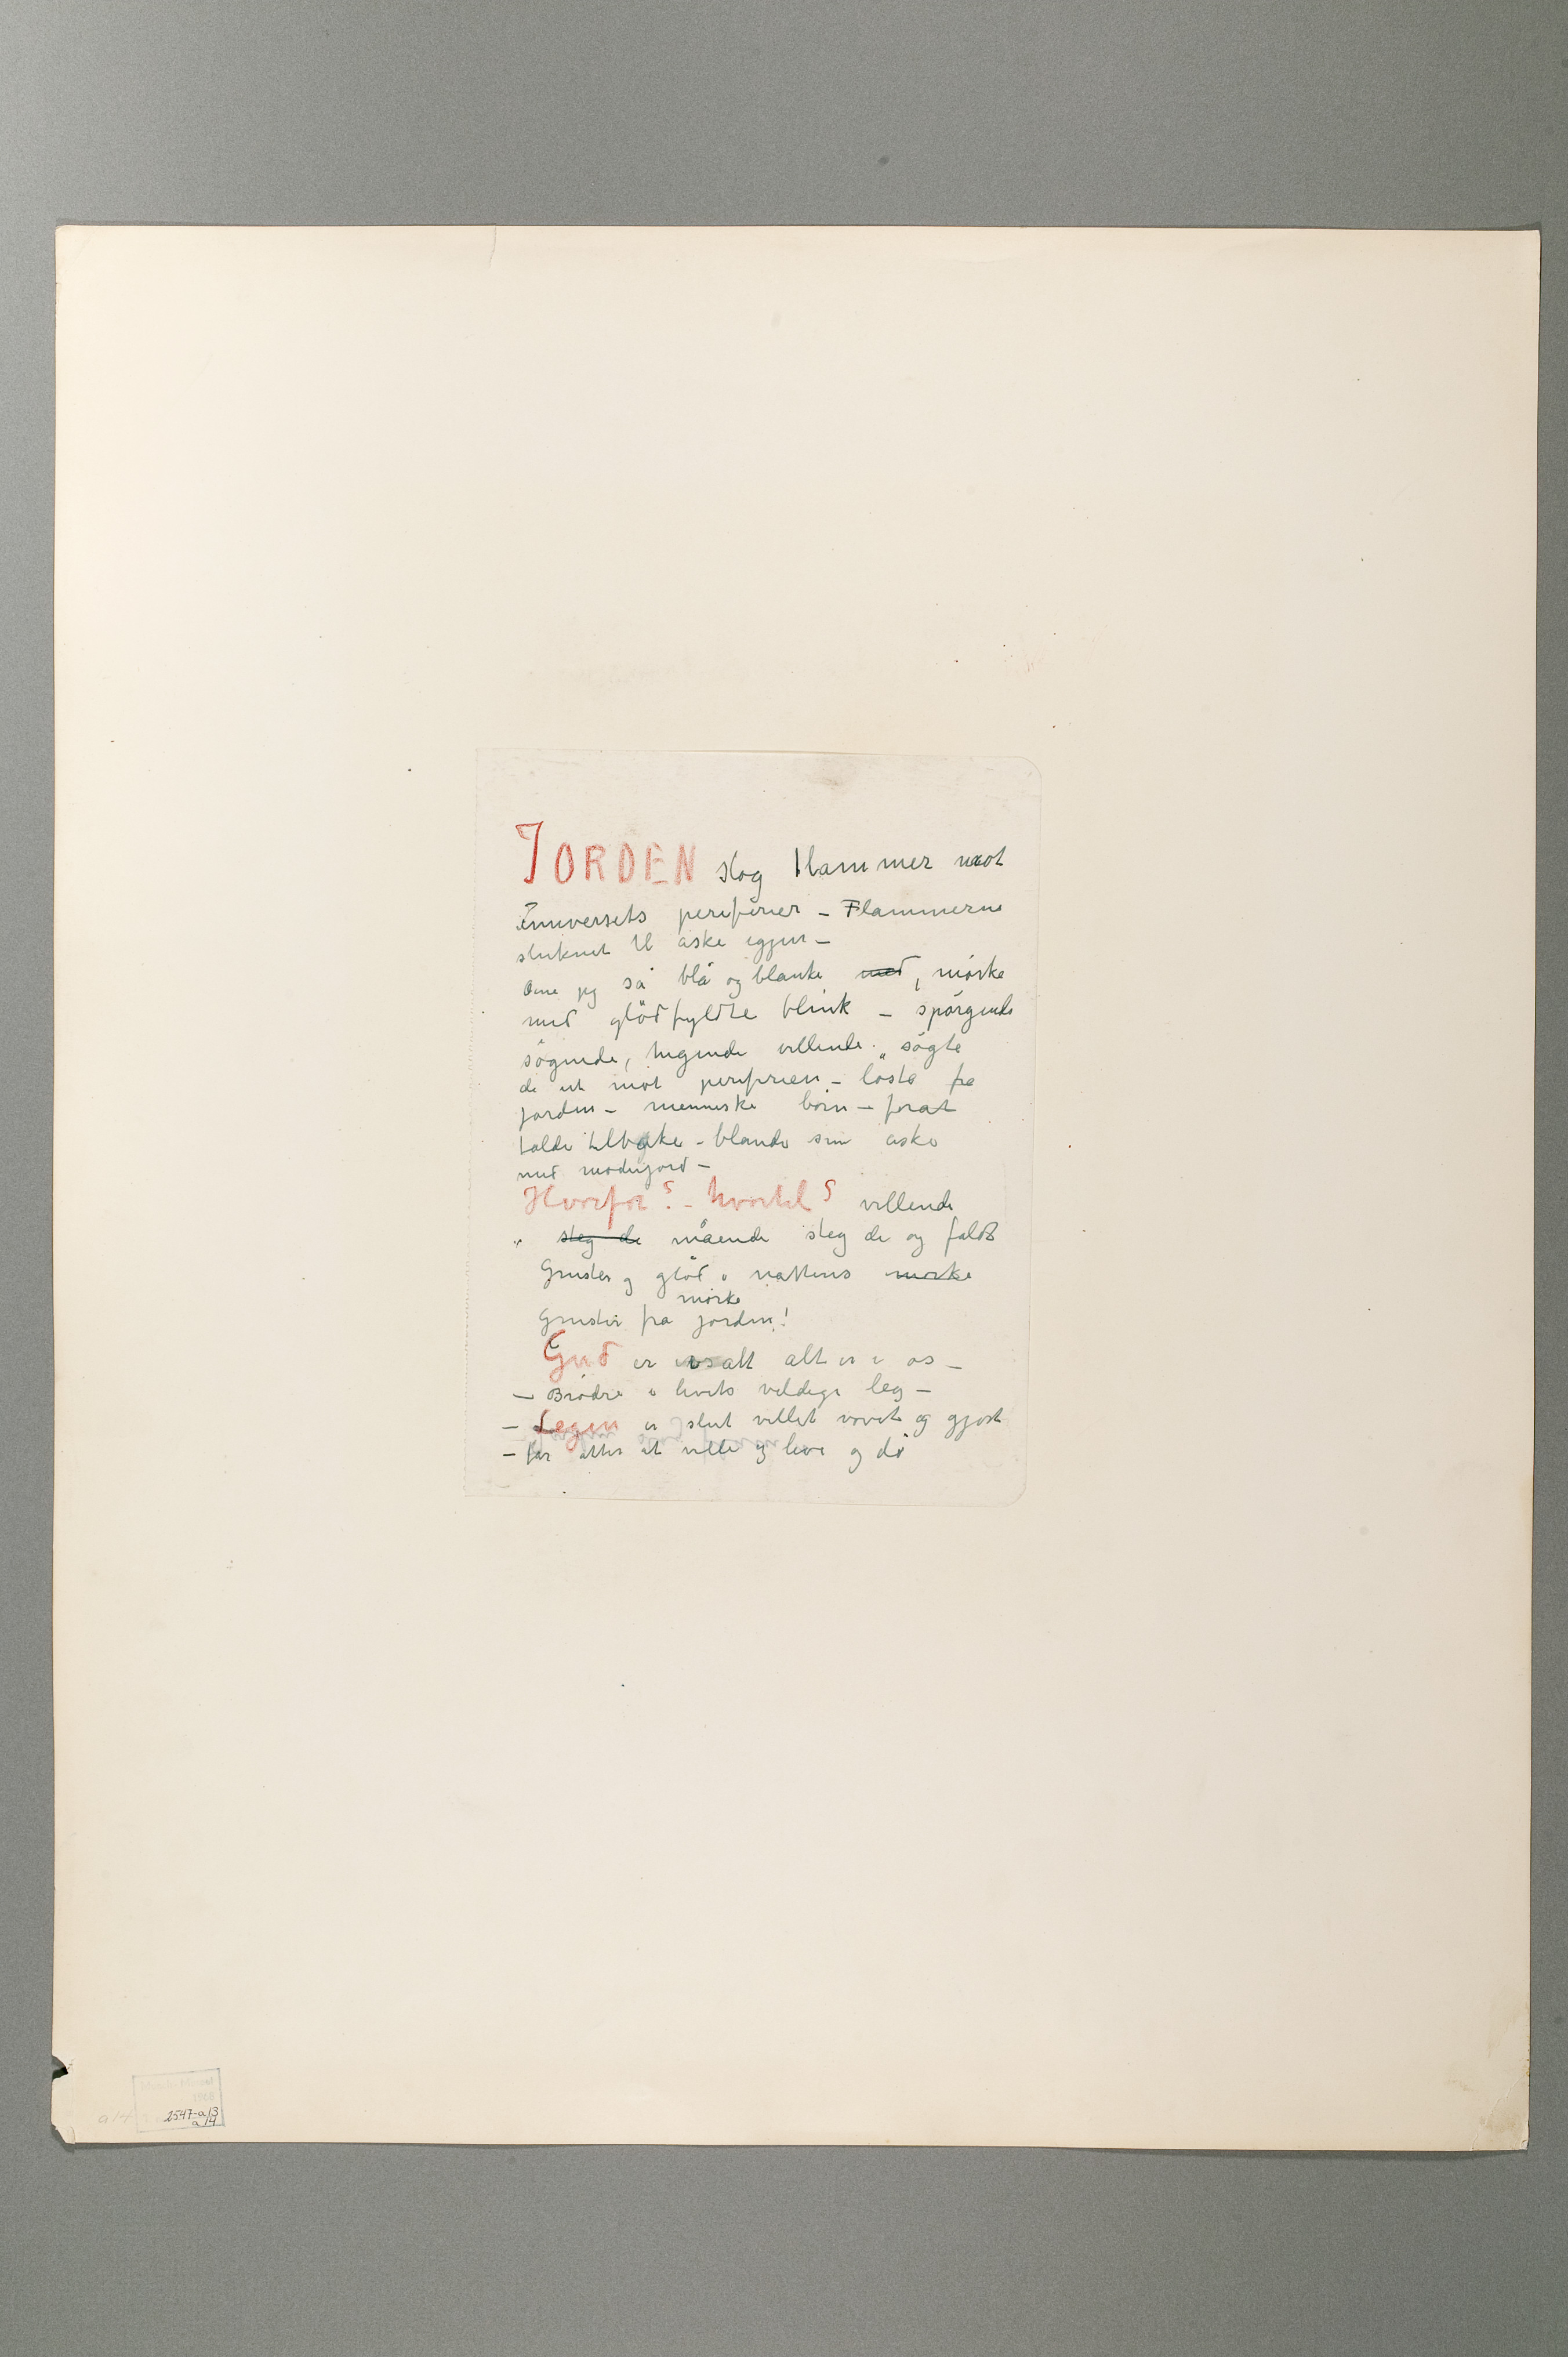 JORDEN slog flammer mot
Euniversets periferier - Flammerne
sluknet til aske igjen -
Øine jeg så blå og blanke med, mörke
med glödfyldte blink - spörgende
sögende, higende villende. sögte
de ut mot periferien - löste fra
jorden - menneske börn - forat
falde tilbake - blande sin aske
med moderjord -
Hvorfor? - hvortil? villende
steg de mående steg de og faldt
Gnister og glöd i nattens mörke
mörke
Gnister fra jorden!
Gud er i os alt alt er i os -
- Brödre i livets veldige leg -
- Legen er slut villet vovet og gjort
- for atter at ville og leve og dö
2547-a13
a14